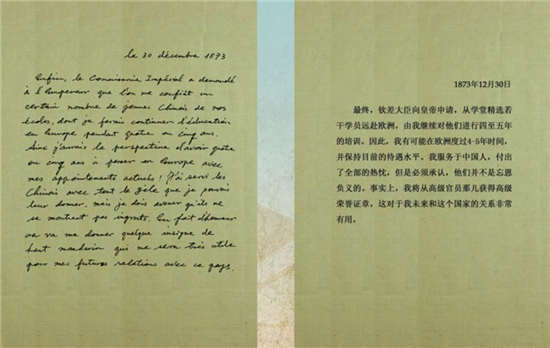 le 30 décembre 1873
Enfin, le Commissaire Impérial a demandé
à l'Empereur que l'on me confiât un
certain nombre de jeunes Chinois de nos
écoles, dont je ferais continuer l'éducation
en Europe pendant quatre ou cinq ans.
Ainsi j'aurais la perspective d'avoir quatre
ou cinq ans à passer en Europe avec
mes appointements actuels ! J'ai servi les
Chinois avec tout le zèle que je pouvais
leur donner, mais je dois avouer qu'ils ne
se montrent pas ingrats. En fait d'honneur
on va me donner quelque insigne de
haut mandarin qui me sera très utile
pour mes futures relations avec ce pays.
1873年12月30日
最终，钦差大臣向皇帝申请，从学堂精选若
干学员远赴欧洲，由我继续对他们进行四至五年
的培训。因此，我有可能在欧洲度过4-5年时间，
并保持目前的待遇水平。我服务于中国人，付出
了全部的热忱，但是必须承认，他们并不是忘恩
负义的。事实上，我将从高级官员那儿获得高级
荣誉证章，这对于我未来和这个国家的关系非常
有用。